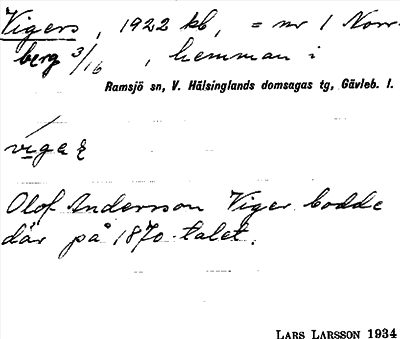 Vigers, 1922 kb, = nr 1 Norr-
berg 3/16, hemman i
Ramsjö sn, V. Hälsinglands domsagas tg, Gävleb. l.
Olof Anderson Viger bodde
där på 1870-talet.
LARS LARSSON 1934